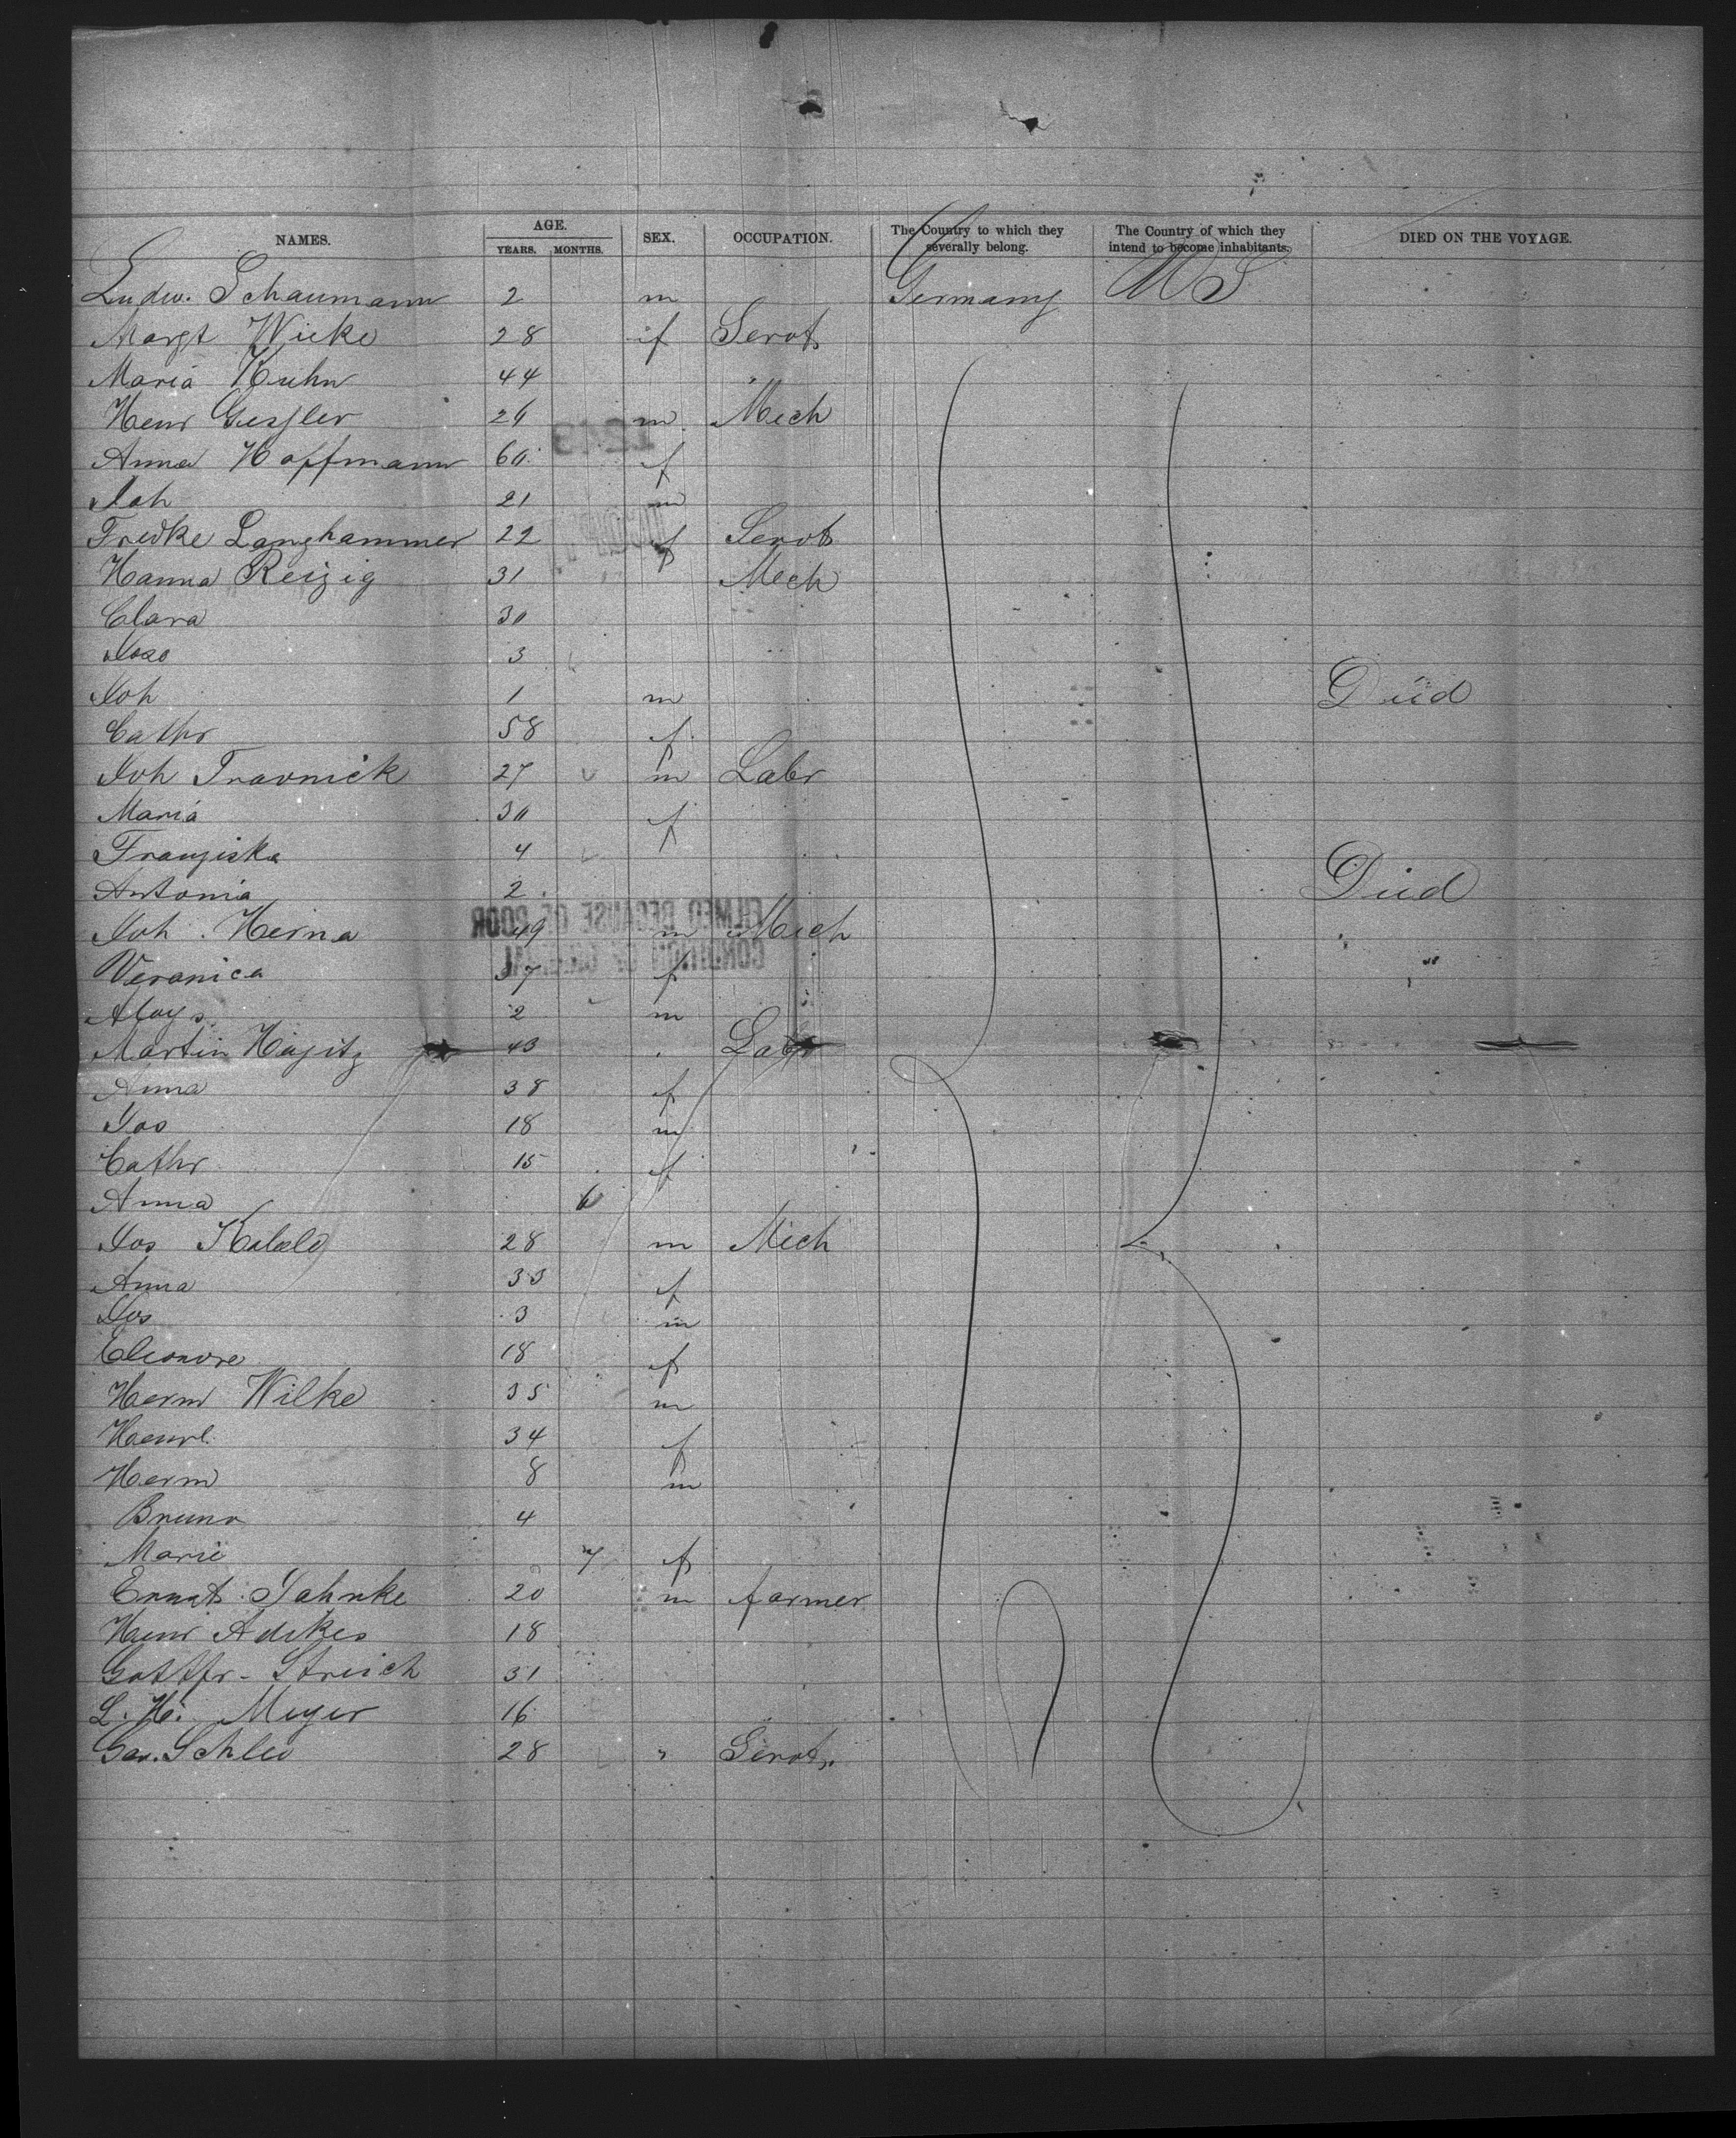 NAMES. AGE. YEARS. MONTHS. SEX. OCCUPATION. The Country to which they severally belong. The Country of which they intend to become inhabitants. DIED ON THE VOYAGE.
Ludw. Schaumann 2 m Germany US
Margt Wicke 28 f Servt
Maria Kuhn 44 "
Henr Gessler 26 m Mech
Anna Hoffmann 60 f
Joh 21 m
Fredke Langhammer 22 f Servt
Hanna Reizig 31 Mech
Clara 30
3
Joh 1 m Died
Cathr 58 f
Joh Travnick 27 m Labr
Maria 30 f
Franziska 4
Antonia 2 Died
Joh. Herna 49 m Mech
Veronica 37 f
Aloys 2 m
Martin Hajitz 43 Labr
Anna 38 f
Jos 18 m
Cathr 15 f
Anna 6
Jos 28 m Mech
Anna 33 f
Jos 3 m
Eleonore 18 f
Herm Wilke 35 m
Henrl. 34 f
Herm 8 m
Bruno 4
Marie 7 f
Ernst Jahnke 20 m farmer
Henr Adikes 18
Gottfr. Streich 31
L. H. Meyer 16
Schleo 28 " Servt.
FILMED BECAUSE OF POOR
CONDITION OF ORIGINAL